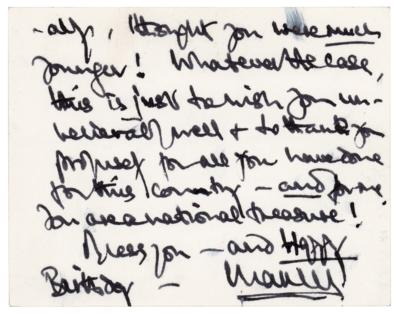 -ally, I thought you were much
younger! Whatever the case,
this is just to wish you un-
reservedly well & to thank you
profusely for all you have done
for this country - and for me
You are a national treasure!
Bless you - and Happy
Birthday -